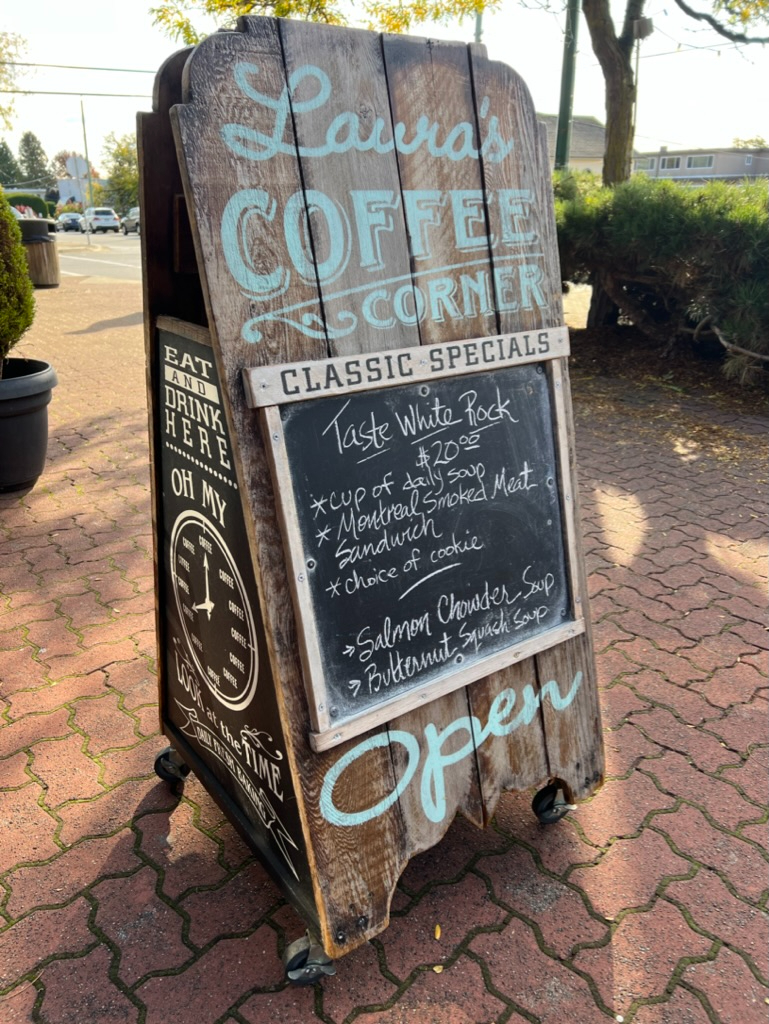 Laura's
COFFEE
CORNER
CLASSIC SPECIALS
Taste White Rock
$20.00
*cup of daily soup
*Montreal Smoked Meat
Sandwich
*choice of cookie
→Salmon Chowder Soup
→Butternut Squash Soup
Open
EAT
AND
DRINK
HERE
OH MY
COFFEE
COFFEE
COFFEE
COFFEE
COFFEE
COFFEE
COFFEE
COFFEE
COFFEE
COFFEE
COFFEE
COFFEE
LOOK at the TIME
DAILY FRESH BAKING